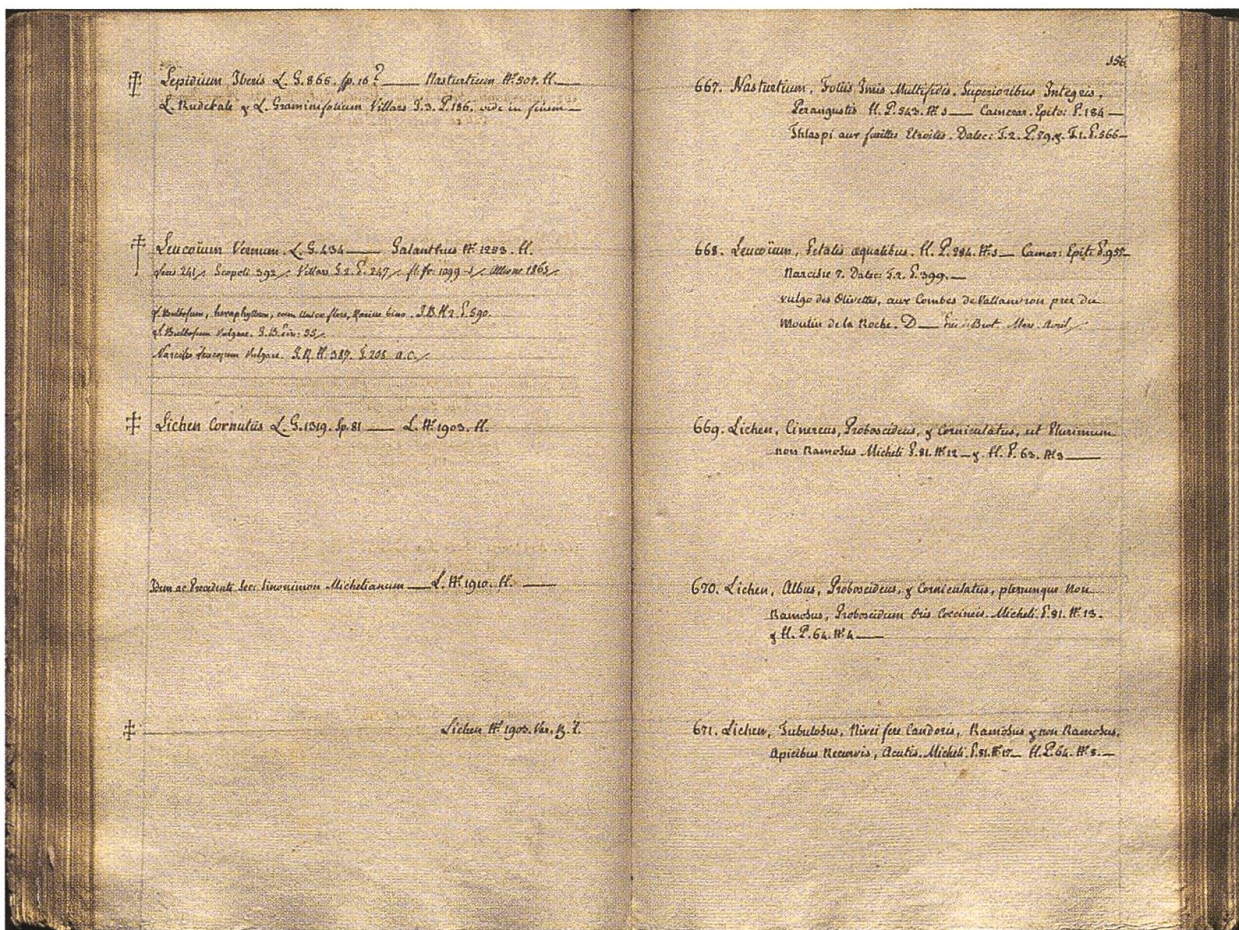 ‡ Lepidium Iberis L. G. 866. sp. 16? — Nasturtium N.º 507. H. —
L. Ruderale & L. Graminifolium Villars T. 3. P. 186. vide in
‡ Leucoïum Vernum L. G. 434 — Galanthus N.º 1253. H.
241 / Scopoli 392 / Villars T. 2. P. 247 / fl. fr. 1099 / Allione 1865 /
Bulbosum, hexaphyllum, cum unico flore, Rarius bino. I. B. H. 2. P. 590.
Bulbosum Vulgare. 55 /
Narcisso Leucojum Vulgare. I. R. H. 387. T. 208. a. c. /
‡ Lichen Cornutus L. G. 1319. Sp. 81 — L. N.º 1903. H.
Idem ac Precedenti Sec. Sinonimon Michelianum — L. N.º 1910. H. —
‡ Lichen N.º 1903. Var. B. 7.
156
667. Nasturtium, Foliis Imis Multifidis, Superioribus Integris,
Perangustis H. P. 543. N.º 5 — Camerar. Epito: P. 184 —
Thlaspi aux feuilles Etroites. Dalec: T. 2. P. 59. & T. 1. P. 566 —
668. Leucoïum, Petalis æqualibus. H. P. 284. N.º 5 — Camer: Epit: P. 957
Narcisse 7. Dalec: T. 2. P. 399. —
vulgo des Olivettes, aux Combes de Vallanvron près du
Moulin de la Roche. D — Mars. Avril /
669. Lichen, Cinereus, Proboscideus, & Corniculatus, ut Plurimum
non Ramosus Micheli P. 81. N.º 12 — & H. P. 63. N.º 3 —
670. Lichen, Albus, Proboscideus, & Corniculatus, plerumque Non
Ramosus, Proboscidum Oris Coccineis. Micheli. P. 81. N.º 13.
& H. P. 64. N.º 4 —
671. Lichen, Tubulosus, Nivei fere Candoris, Ramosus & non Ramosus,
Apicibus Recurvis, Acutis. Micheli. P. 81. N.º 17 — H. P. 64. N.º 5. —